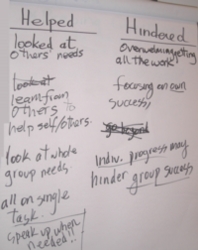 Helped
looked at
others' needs
look at
learn from
others to
help self/others.
look at whole
group needs.
all on single
task.
speak up when
needed!!
Hindered
getting
all the work
focusing on own
success
go beyond
Indiv. progress may
hinder group success